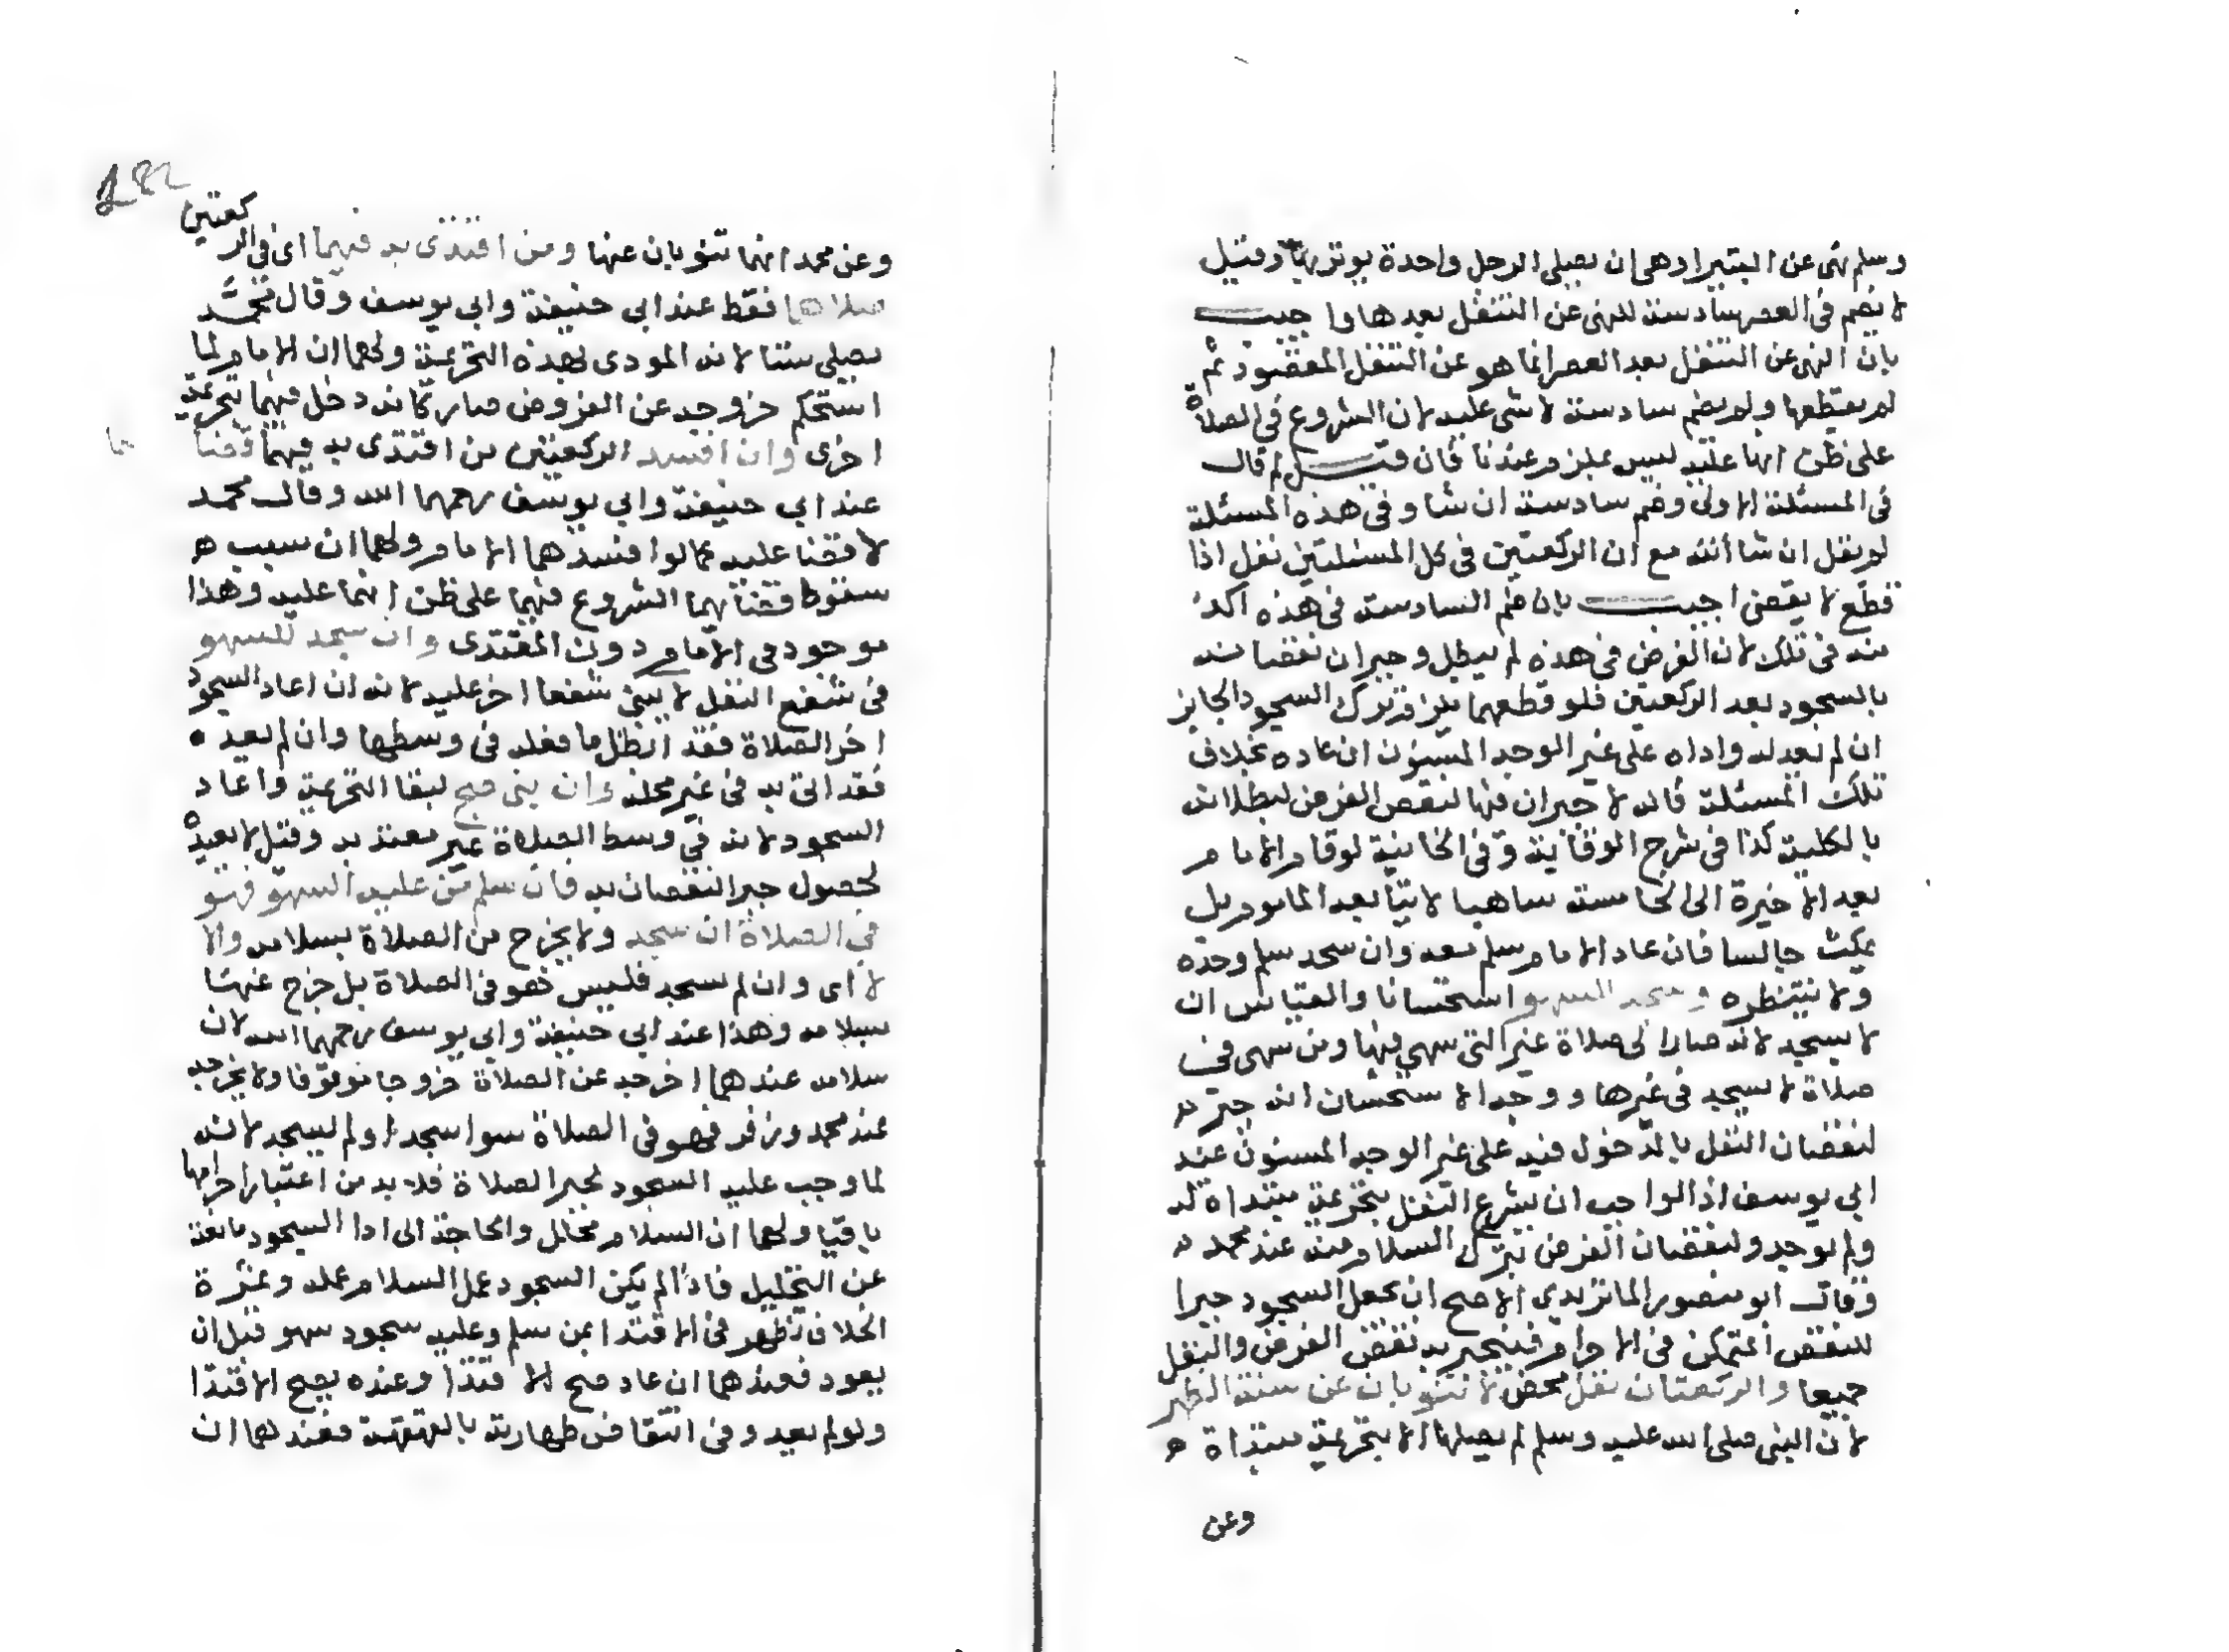 وسلم نهى عن البتيرا وهي ان يصلي الرجل واحدة يوتر بها وقيل
لا يضم في العصر سادسة للنهي عن التنفل بعدها واجيب
بان النهي عن التنفل بعد العصر انما هو عن التنفل المقصود ثم
لو لم يقطعها ولم يضم سادسة لا شي عليه لان الشروع في الصلاة
على ظن انها عليه ليس بملزم عندنا فان قيل لم قال
في المسئلة الاولى وضم سادسة ان شا وفي هذه المسئلة
لم يقل ان شا مع ان الركعتين في كل المسئلتين نفل اذا
قطع لا يقضي اجيب بان ضم السادسة في هذه اكد
منه في تلك لان الفرض في هذه لم يبطل وجبران نقصانه
بالسجود بعد الركعتين فلو قطعهما يلزم ترك السجود الجابر
ان لم يعد له واداه على غير الوجه المسنون ان عاده بخلاف
تلك المسئلة فانه لا جبران فيها لنقص الفرض لبطلانه
بالكلية كذا في شرح الوقاية وفي الخانية لو قام الامام
بعد الاخيرة الى الخامسة ساهيا لا يتابعه الماموم بل
يمكث جالسا فان عاد الامام سلم معه وان سجد سلم وحده
ولا ينتظره وسجد للسهو استحسانا والقياس ان
لا يسجد لانه صار الى صلاة غير التي سهي فيها ومن سهى في
صلاة لا يسجد في غيرها ووجه الاستحسان انه جبر
لنقصان النفل بالدخول فيه على غير الوجه المسنون عند
ابي يوسف اذ الواجب ان يشرع النفل بتحريمة مبتداة له
ولم يوجد ولنقصان الفرض بترك السلام منه عند محمد
وقال ابو منصور الماتريدي الاصح ان يجعل السجود جبرا
للنقص المتمكن في الاحرام فينجبر به نقص الفرض والنفل
جميعا والركعتان نفل محض لا تنوبان عن سنة الظهر
لان النبي صلى الله عليه وسلم لم يصلها الا بتحريمة مبتداة
وعن
وعن محمد انهما تنوبان عنها ومن اقتدى به فيهما اي في الركعتين
صلاهما فقط عند ابي حنيفة وابي يوسف وقال محمد
يصلي ستا لانه المودى بهذه التحريمة ولهما ان الامام لما
استحكم خروجه عن الفروض صار كانه دخل فيهما بتحريمة
اخرى وان افسد الركعتين من اقتدى به فيهما قضاهما
عند ابي حنيفة وابي يوسف رحمهما الله وقال محمد
لا قضا عليه كما لو افسدهما الامام ولهما ان سبب
سقوط قضائهما الشروع فيهما على ظن انهما عليه وهذا
موجود في الامام دون المقتدى وان سجد للسهو
في شفع النفل لا يبني شفعا اخر عليه لانه ان اعاد السجود
اخر الصلاة فقد ابطل ما فعله في وسطها وان لم يعد
فقد اتى به في غير محله وان بنى صح لبقا التحريمة واعاد
السجود لانه في وسط الصلاة غير معتد به وقيل لا يعيده
لحصول جبر النقصان به فان سلم من عليه السهو فهو
في الصلاة ان سجد ولا يخرج من الصلاة بسلامه والا
لا اى وان لم يسجد فليس هو في الصلاة بل خرج عنها
بسلامه وهذا عند ابي حنيفة وابي يوسف رحمهما الله لان
سلامه عندهما اخرجه عن الصلاة خروجا موقوفا ولا يخرجه
عند محمد وزفر فهو في الصلاة سوا سجد او لم يسجد لانه
لما وجب عليه السجود لجبر الصلاة فلا بد من اعتبار احرامها
باقيا ولهما ان السلام محلل والحاجة الى ادا السجود مانعة
عن التحليل فاذا لم يكن السجود عمل السلام عمله وثمرة
الخلاف تظهر في الاقتدا بمن سلم وعليه سجود سهو قبل ان
يعود فعندهما ان عاد صح الاقتدا وعنده يصح الاقتدا
ولو لم يعد وفي انتقاض طهارته بالقهقهة فعندهما ان